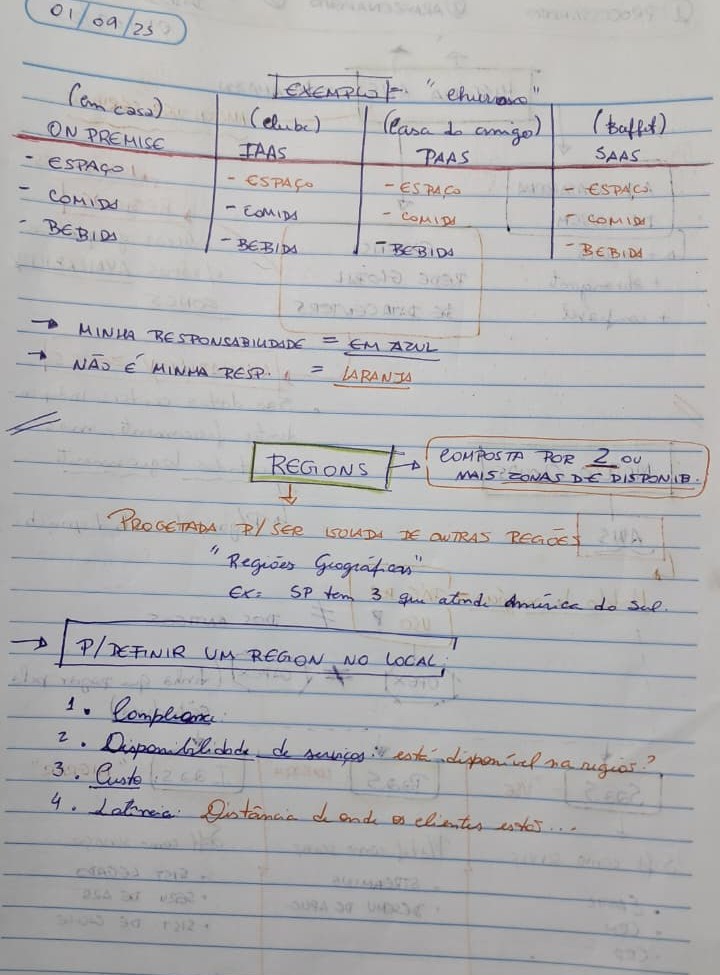 01/09/25
EXEMPLO = "churrasco"
(em casa) (clube) (Casa do amigo) (Buffet)
ON PREMISE IAAS PAAS SAAS
- ESPAÇO - ESPAÇO - ESPAÇO - ESPAÇO
- COMIDA - COMIDA - COMIDA - COMIDA
- BEBIDA - BEBIDA - BEBIDA - BEBIDA
→ MINHA RESPONSABILIDADE = EM AZUL
→ NÃO É MINHA RESP. = LARANJA
REGIONS → COMPOSTA POR 2 OU
MAIS ZONAS DE DISPONIB.
PROGETADA P/ SER ISOLADA DE OUTRAS REGIÕES
"Regiões Geográficas"
Ex: SP tem 3 que atende América do Sul.
→ P/ DEFINIR UM REGION NO LOCAL:
1. Compliance
2. Disponibilidade de serviços: está disponível na região?
3. Custo
4. Latência: Distância de onde os clientes estão...